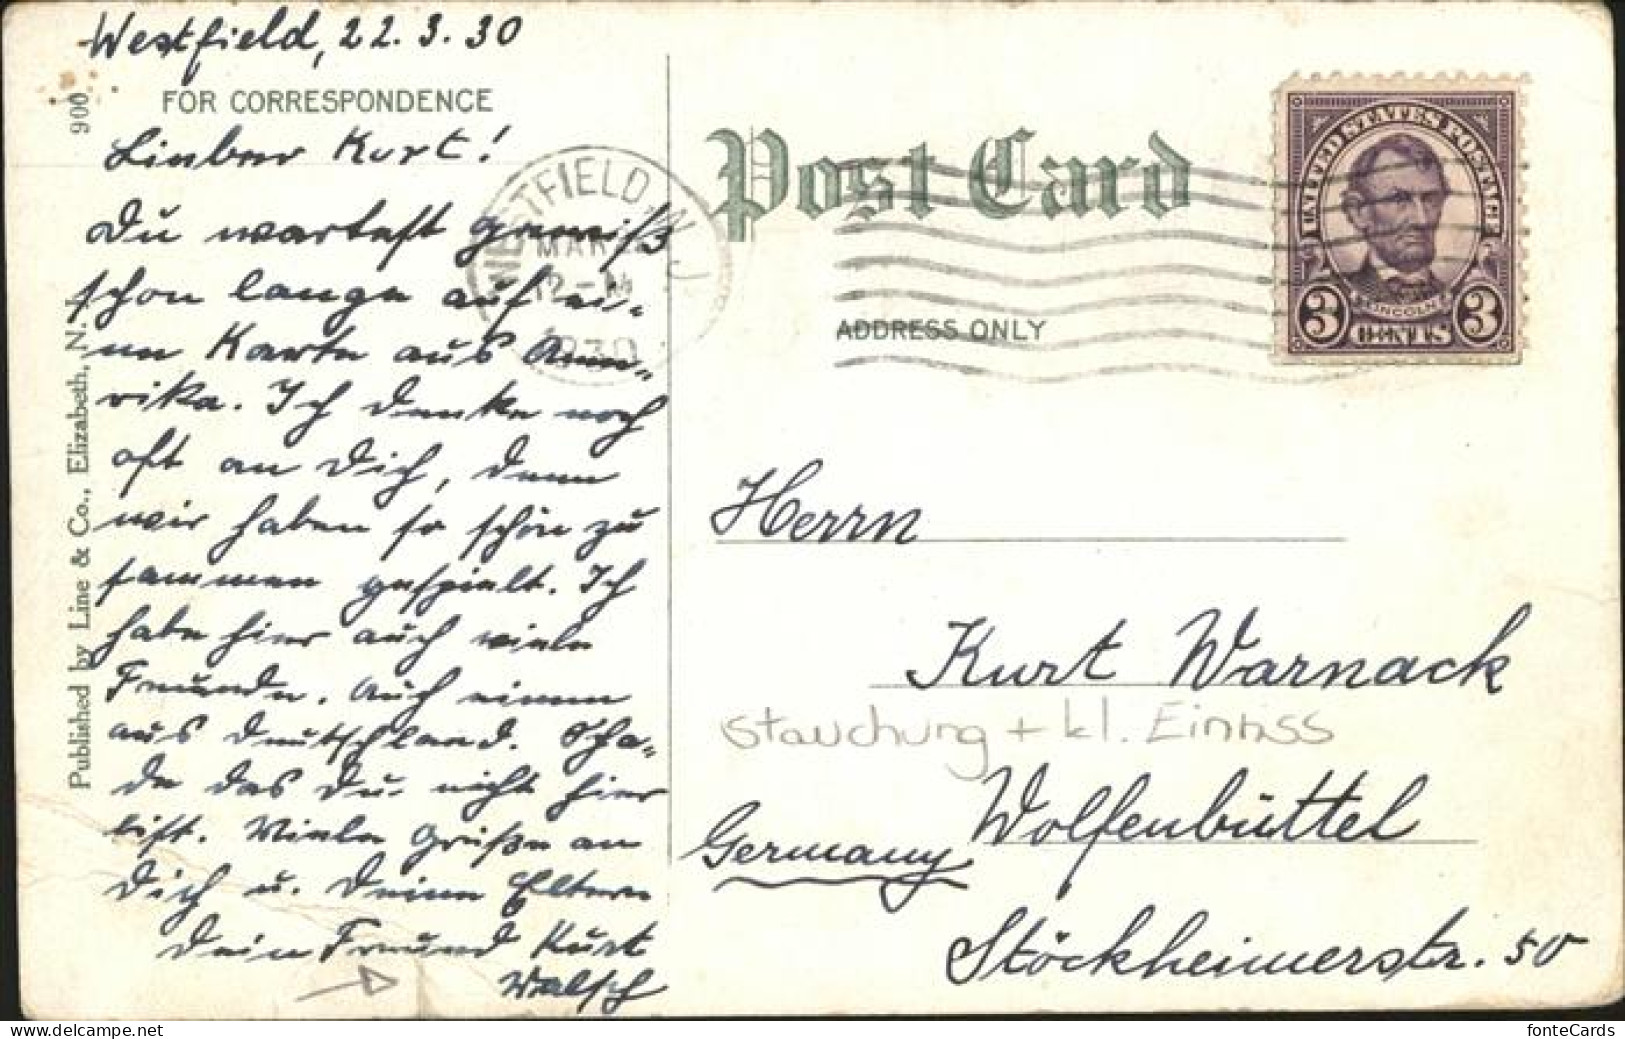 Westfield, 22. 3. 30
FOR CORRESPONDENCE
900
Lieber Kurt!
Du wartest gewiß
schon lange auf ei-
ne Karte aus Ame-
rika. Ich denke noch
oft an Dich, denn
wir haben so schön zu
sammen gespielt. Ich
habe hier auch viele
Freunde. Auch einen
aus Deutschland. Scha-
de das Du nicht hier
bist. Viele Grüße an
Dich u. Deine Eltern
Dein Freund Kurt
Walsch
Published by Line & Co., Elizabeth, N. J.
WESTFIELD N.J.
MAR
12-M
1930
Post Card
ADDRESS ONLY
UNITED STATES POSTAGE
LINCOLN
3 CENTS 3
Herrn
Kurt Warnack
Stauchung + kl. Einriss
Wolfenbüttel
Germany
Stöckheimerstr. 50
fonteCards
www.delcampe.net